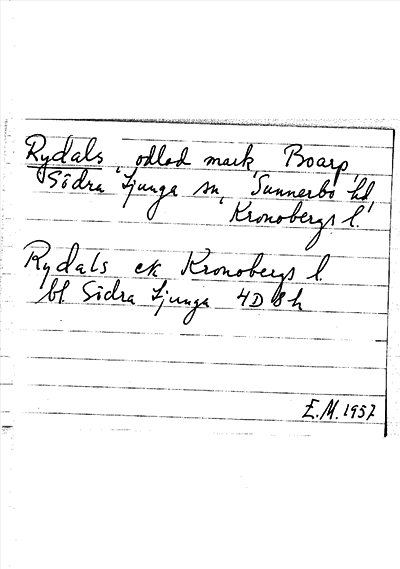 Rydals, odlad mark, Boarp,
Södra Ljunga sn, Sunnerbo hd,
Kronobergs l.
Rydals ek Kronobergs l.
bl Södra Ljunga 4D 8h
E.M. 1957